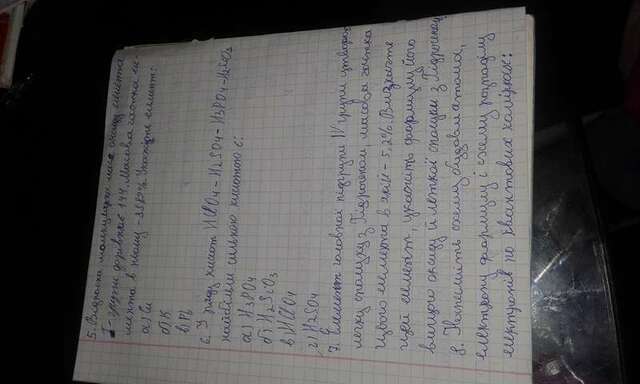 5. Відносна молекулярна маса оксиду елемента
групи дорівнює 144. Масова частка еле-
мента в ньому
а) Са
б) К
в)
6. У ряду кислот HClO4 - H2SO4 - H3PO4 - H2SiO3
найбільш сильною кислотою є:
а) H3PO4
б) H2SiO3
в) HClO4
г) H2SO4
7. Елемент головної підгрупи IV групи утворює
летку сполуку з Гідрогеном, масова частка
якого в ній - 5,2%. Визначте
цей елемент, укажіть формули його
вищого оксиду и леткой сполуки з Гідрогеном
8. Напишіть схему будови атома,
електронну формулу і схему розподілу
електронів по квантових комірках: